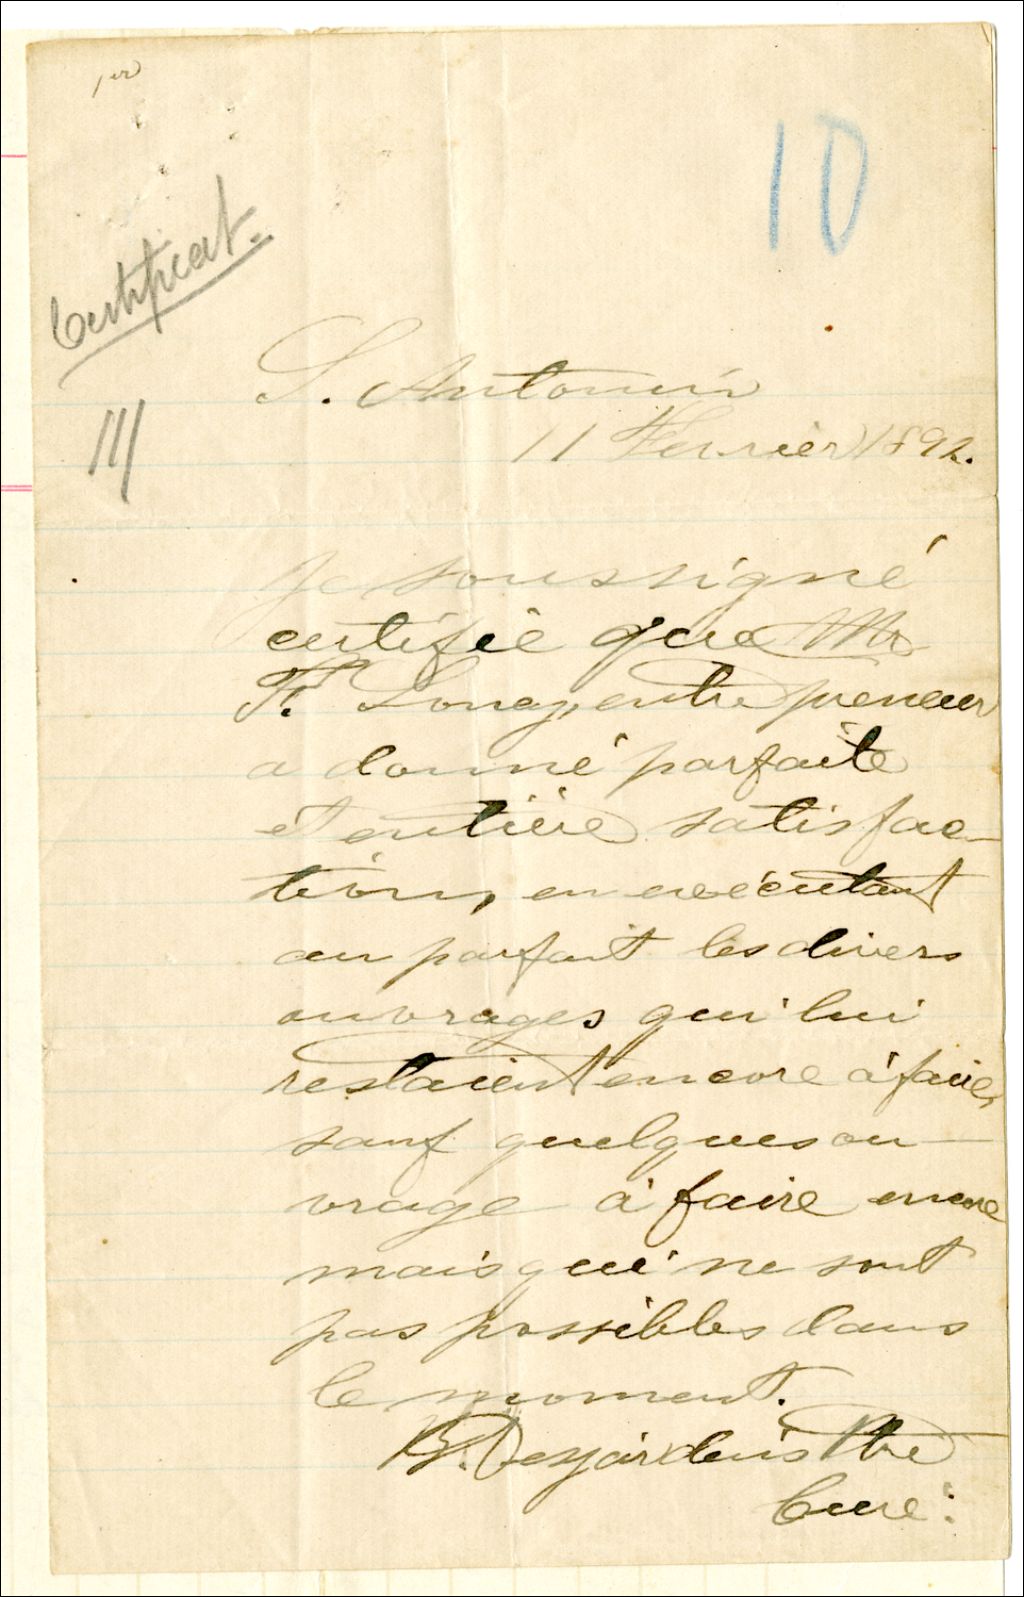 1er
10
Certificat.
III
S. Antonin
11 Fevrier 1892.
Je soussigné
certifie que Mr
F. Long, entrepreneur
a donné parfaite
et entière satisfac-
tion, en exécutant
au parfait les divers
ouvrages qui lui
restaient encore à faire,
sauf quelques ou-
vrage à faire encore
mais qui ne sont
pas possibles dans
le moment.
B. Desjardins Ptre
Curé: